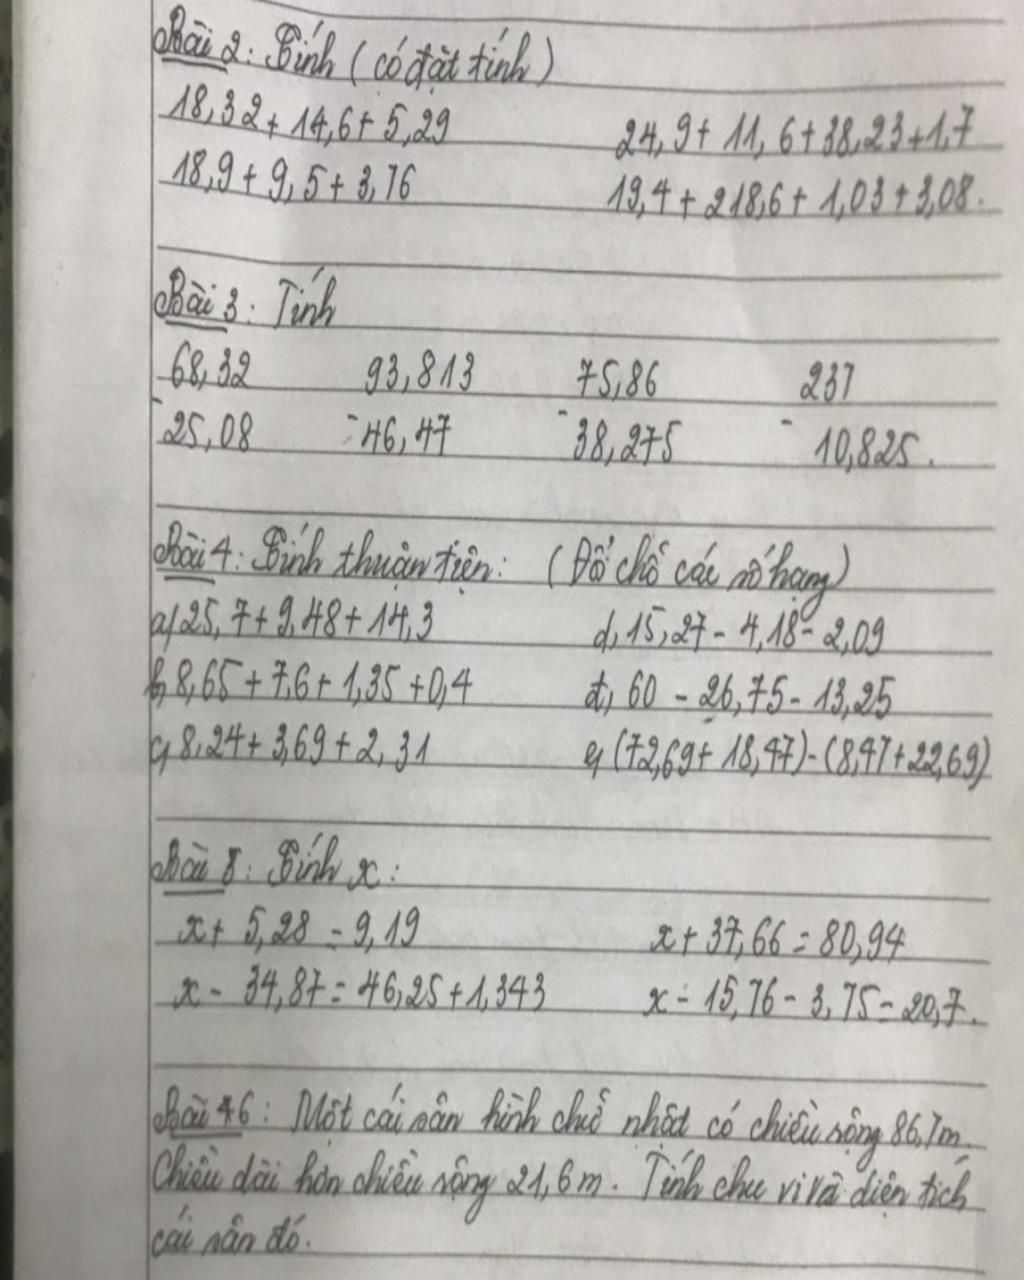 Bài 2: Tính (có đặt tính)
18,32 + 14,6 + 5,29 24,9 + 11,6 + 38,23 + 1,7
18,9 + 9,5 + 3,76 19,4 + 218,6 + 1,03 + 3,08.
Bài 3: Tính
68,32 93,813 75,86 237
- 25,08 - 46,47 - 38,275 - 10,825.
Bài 4: Tính thuận tiện: (Đổi chỗ các số hạng)
a) 25,7 + 9,48 + 14,3 d, 15,27 - 4,18 - 2,09
b, 8,65 + 7,6 + 1,35 + 0,4 đ, 60 - 26,75 - 13,25
c, 8,24 + 3,69 + 2,31 e, (72,69 + 18,47) - (8,47 + 22,69)
Bài 5: Tính x:
x + 5,28 = 9,19 x + 37,66 = 80,94
x - 34,87 = 46,25 + 1,343 x - 15,76 - 3,75 = 20,7.
Bài 6: Một cái sân hình chữ nhật có chiều rộng 86,7m.
Chiều dài hơn chiều rộng 21,6 m. Tính chu vi và diện tích
cái sân đó.